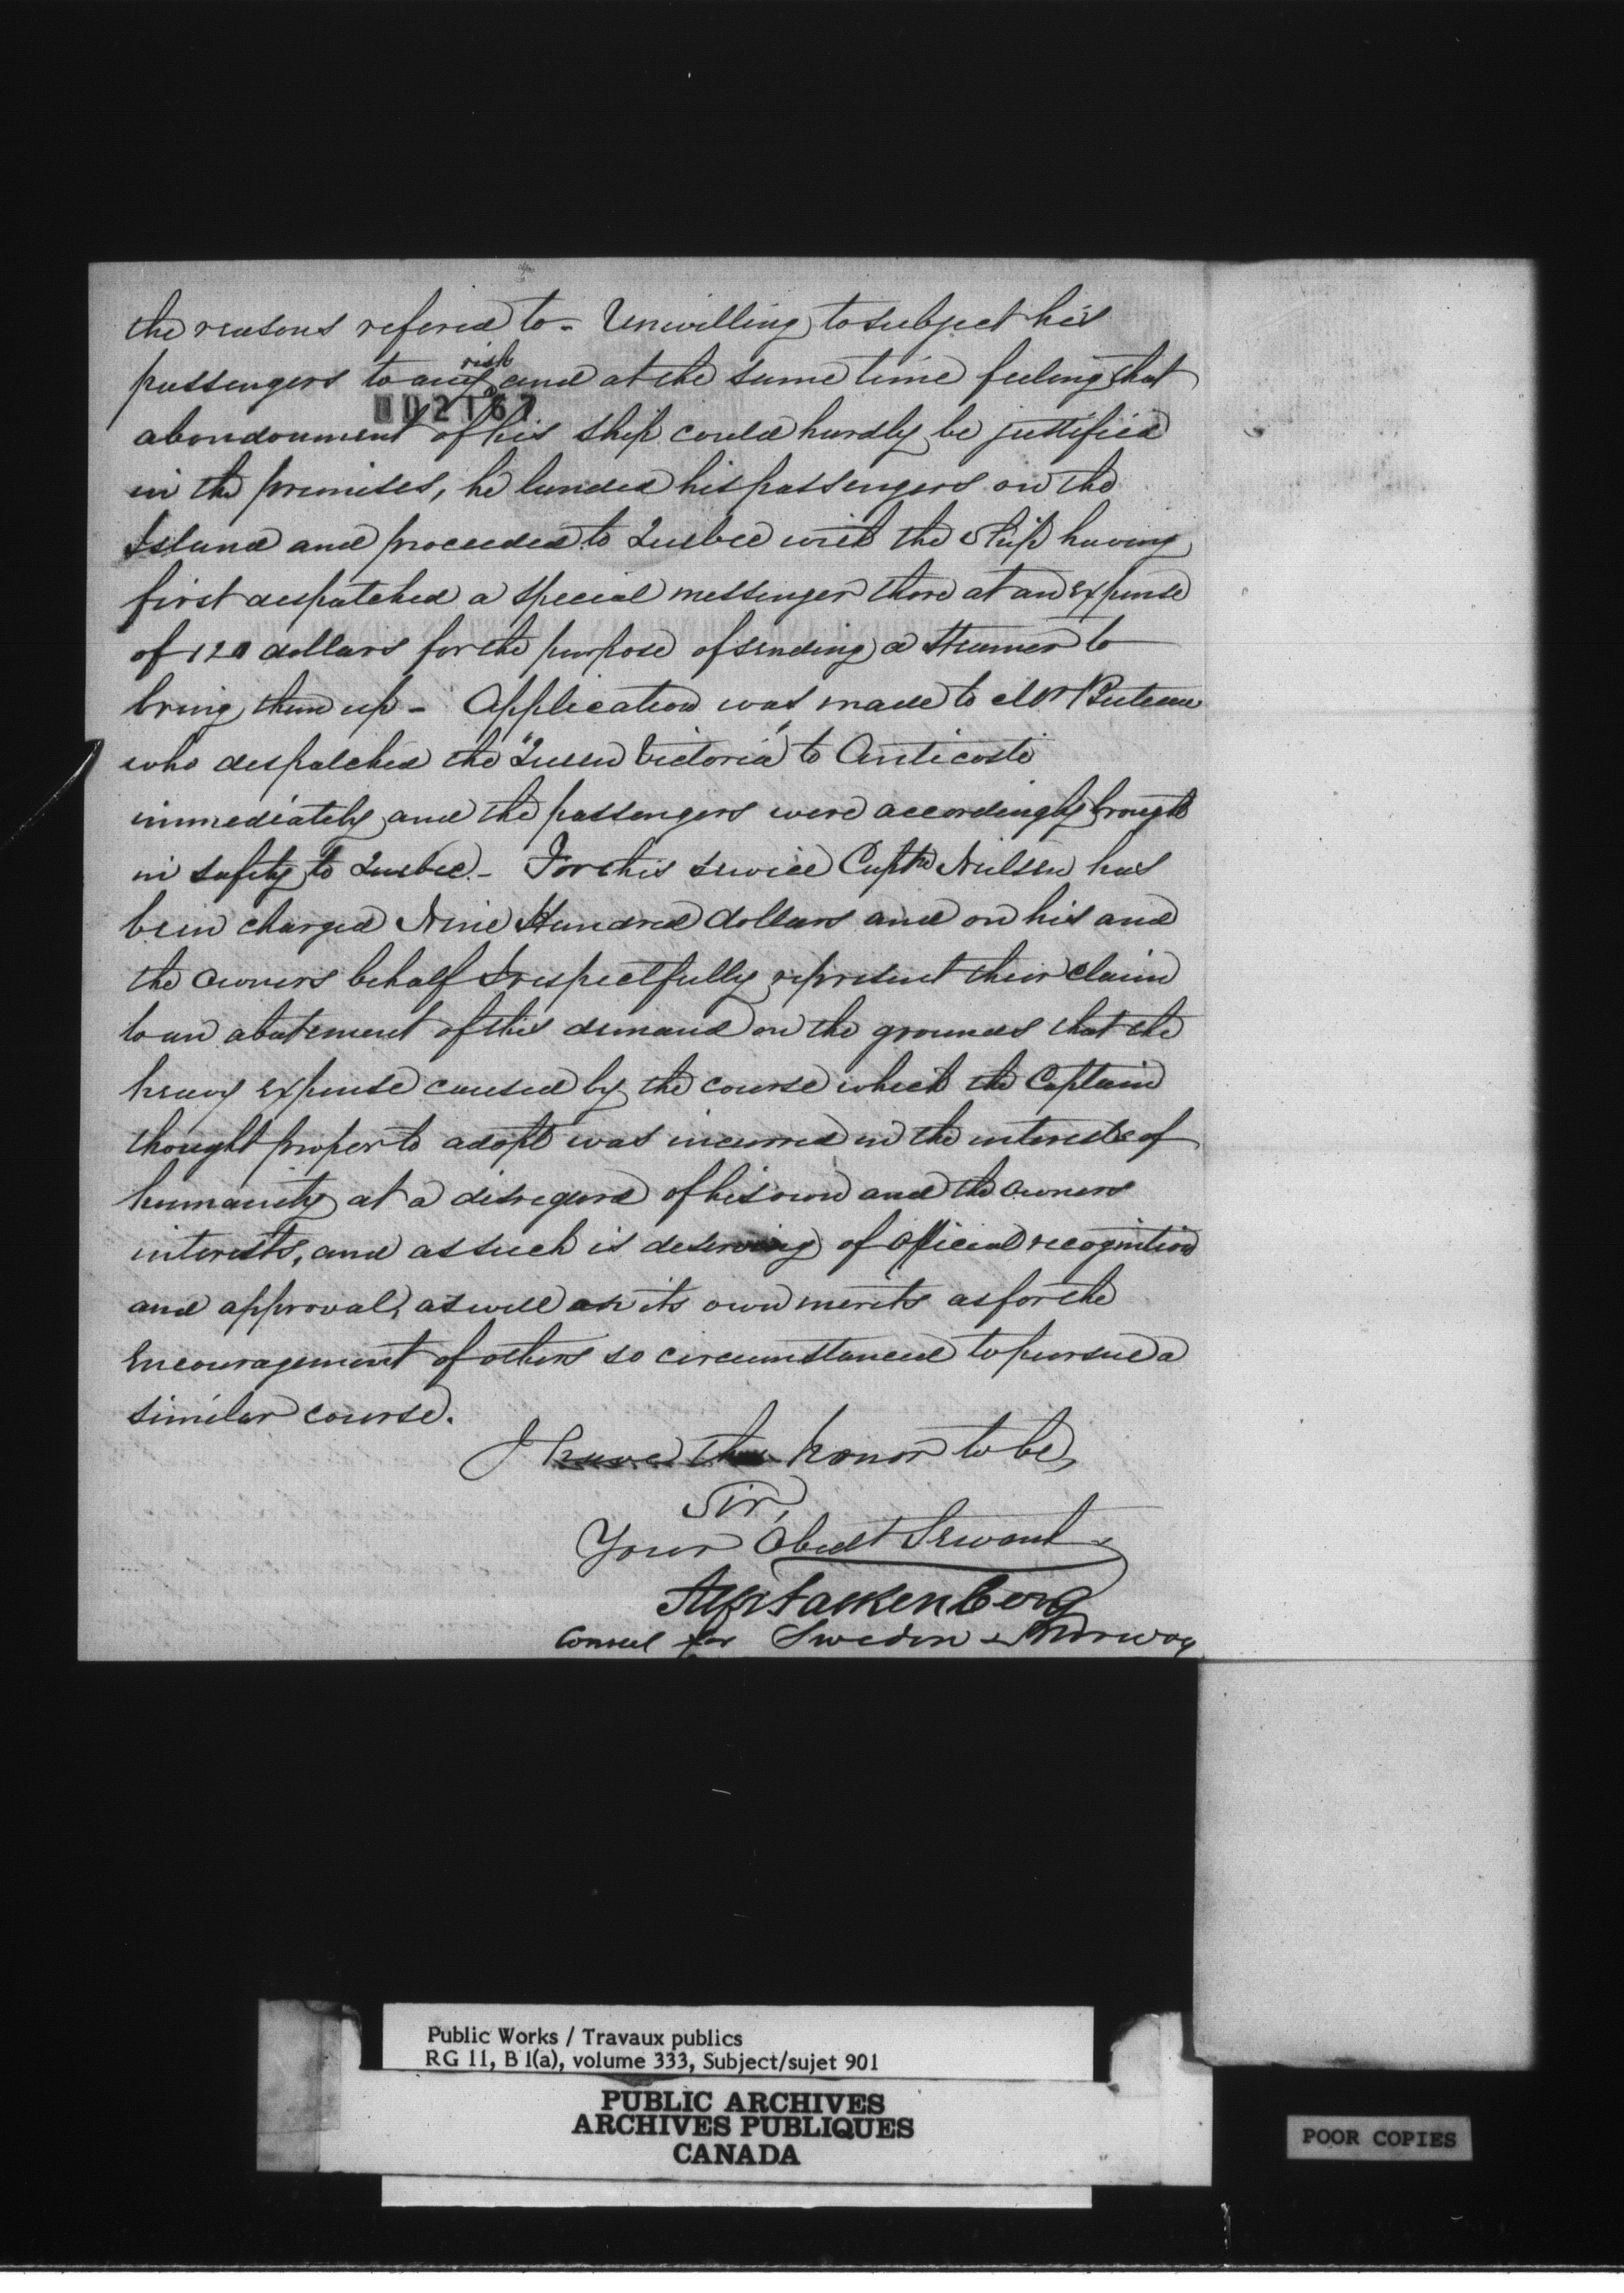 the reasons refered to - Unwilling to subject his
risk
passengers to any and at the same time feeling that
002167
abondonment of his ship could hardly be justified
in the premises, he landed his passengers on the
Island and proceeded to Quebec with the Ship having
first despatched a special messenger there at an expense
of 120 dollars for the purpose of sending a Steamer to
bring them up - Application was made to Mr Buteau
who despatched the "Queen Victoria" to Anticosti
immediately and the passengers were accordingly brought
in safety to Quebec. - For this service Captn Neilsen has
been charged Nine Hundred dollars and on his and
the owners behalf I respectfully represent their claim
to an abatement of this demand on the grounds that the
heavy expense caused by the course which the Captain
thought proper to adopt was incurred in the interests of
humanity at a disregard of his own and the owners
interests, and as such is deserving of official recognition
and approval, as well on its own merits as for the
Encouragement of others so circumstanced to pursue a
similar course.
I have the honor to be,
Sir,
Your Obedt Servant
Falkenberg
Consul for Sweden & Norway
Public Works / Travaux publics
RG 11, B 1(a), volume 333, Subject/sujet 901
PUBLIC ARCHIVES
ARCHIVES PUBLIQUES
CANADA
POOR COPIES